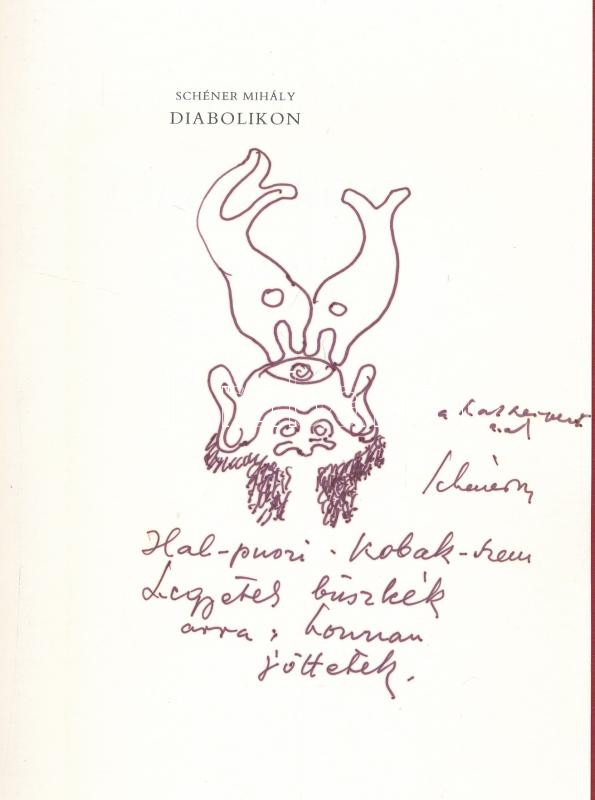 SCHÉNER MIHÁLY
DIABOLIKON
a
Schéner M
Hal-puszi · Kobak-szem
Legyetek büszkék
arra, honnan
jöttetek.